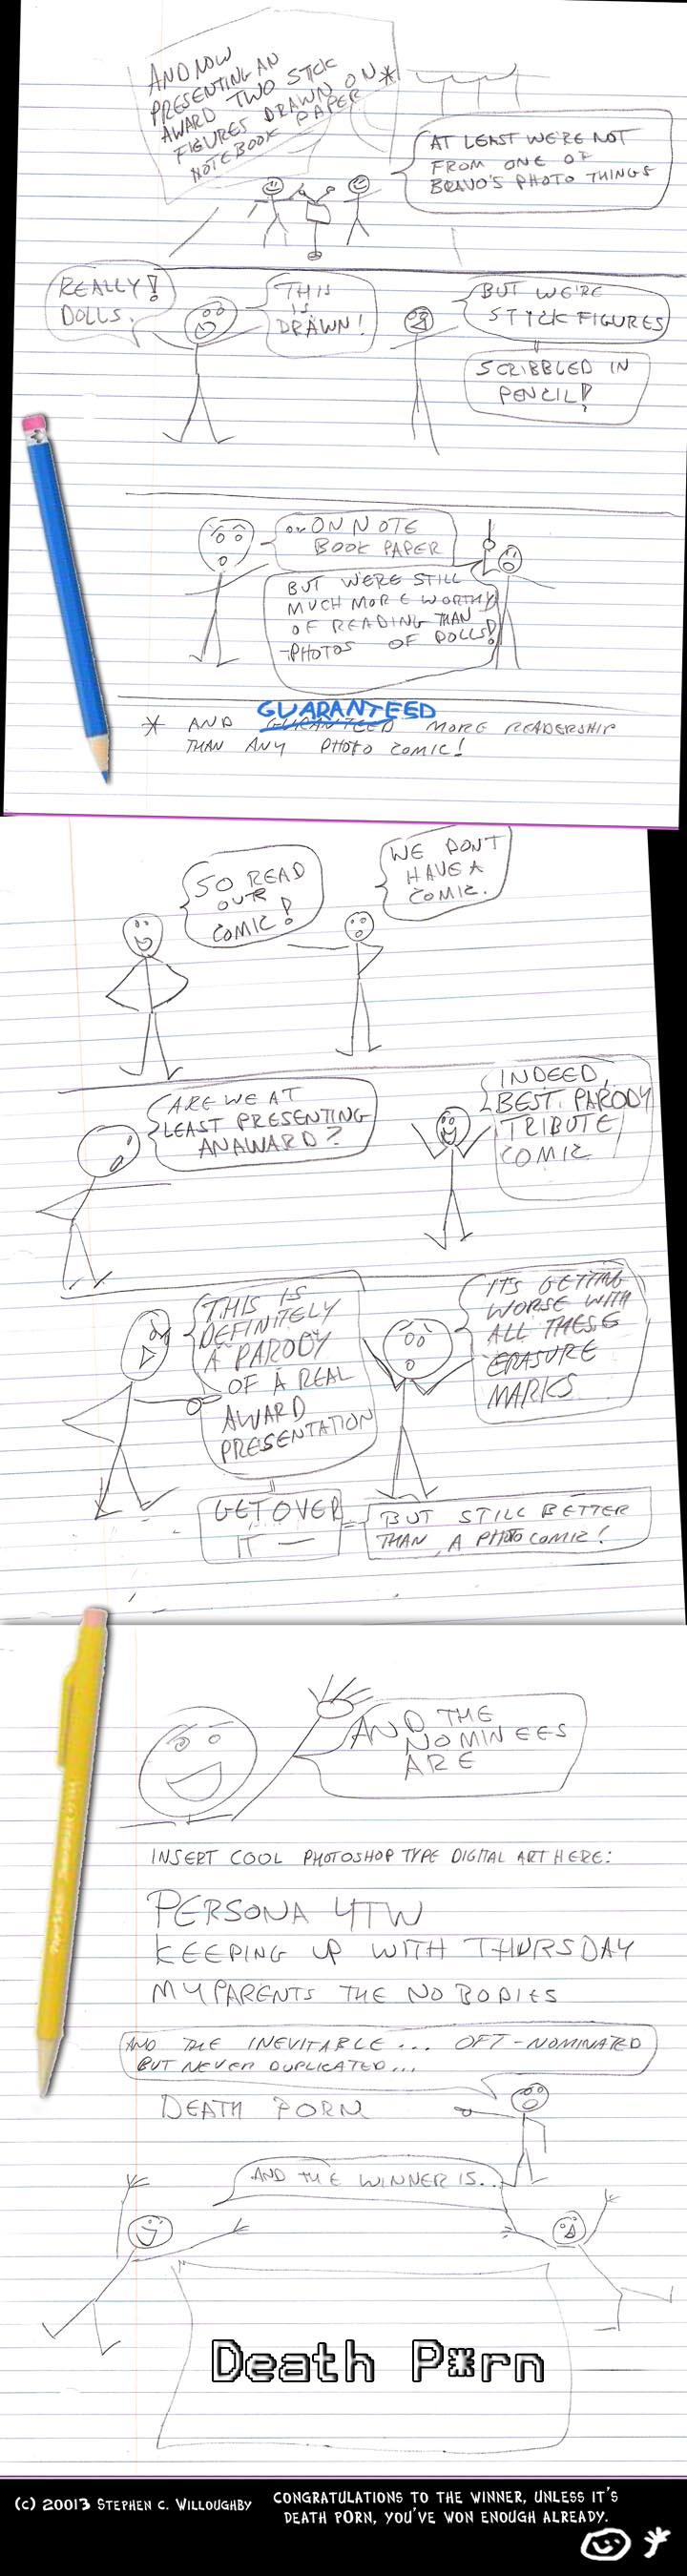 AND NOW
PRESENTING AN
AWARD TWO STICK
FIGURES DRAWN ON*
NOTEBOOK PAPER
AT LEAST WE'RE NOT
FROM ONE OF
BRAVO'S PHOTO THINGS
REALLY!
DOLLS.
THIS
IS
DRAWN!
BUT WE'RE
STICK FIGURES
SCRIBBLED IN
PENCIL!
ON NOTE
BOOK PAPER
BUT WE'RE STILL
MUCH MORE WORTHY
OF READING THAN
PHOTOS OF DOLLS!
GUARANTEED
* AND GURANTEED MORE READERSHIP
THAN ANY PHOTO COMIC!
SO READ
OUR
COMIC!
WE DON'T
HAVE A
COMIC.
ARE WE AT
LEAST PRESENTING
AN AWARD?
INDEED,
BEST PARODY
TRIBUTE
COMIC
THIS IS
DEFINITELY
A PARODY
OF A REAL
AWARD
PRESENTATION
IT'S GETTING
WORSE WITH
ALL THESE
ERASURE
MARKS
GET OVER
IT —
BUT STILL BETTER
THAN A PHOTO COMIC!
AND THE
NOMINEES
ARE
INSERT COOL PHOTOSHOP TYPE DIGITAL ART HERE:
PERSONA 4TW
KEEPING UP WITH THURSDAY
MY PARENTS THE NOBODIES
AND THE INEVITABLE... OFT-NOMINATED
BUT NEVER DUPLICATED...
DEATH PORN
AND THE WINNER IS...
Death P*rn
(C) 20013 STEPHEN C. WILLOUGHBY
CONGRATULATIONS TO THE WINNER, UNLESS IT'S
DEATH P0RN, YOU'VE WON ENOUGH ALREADY.